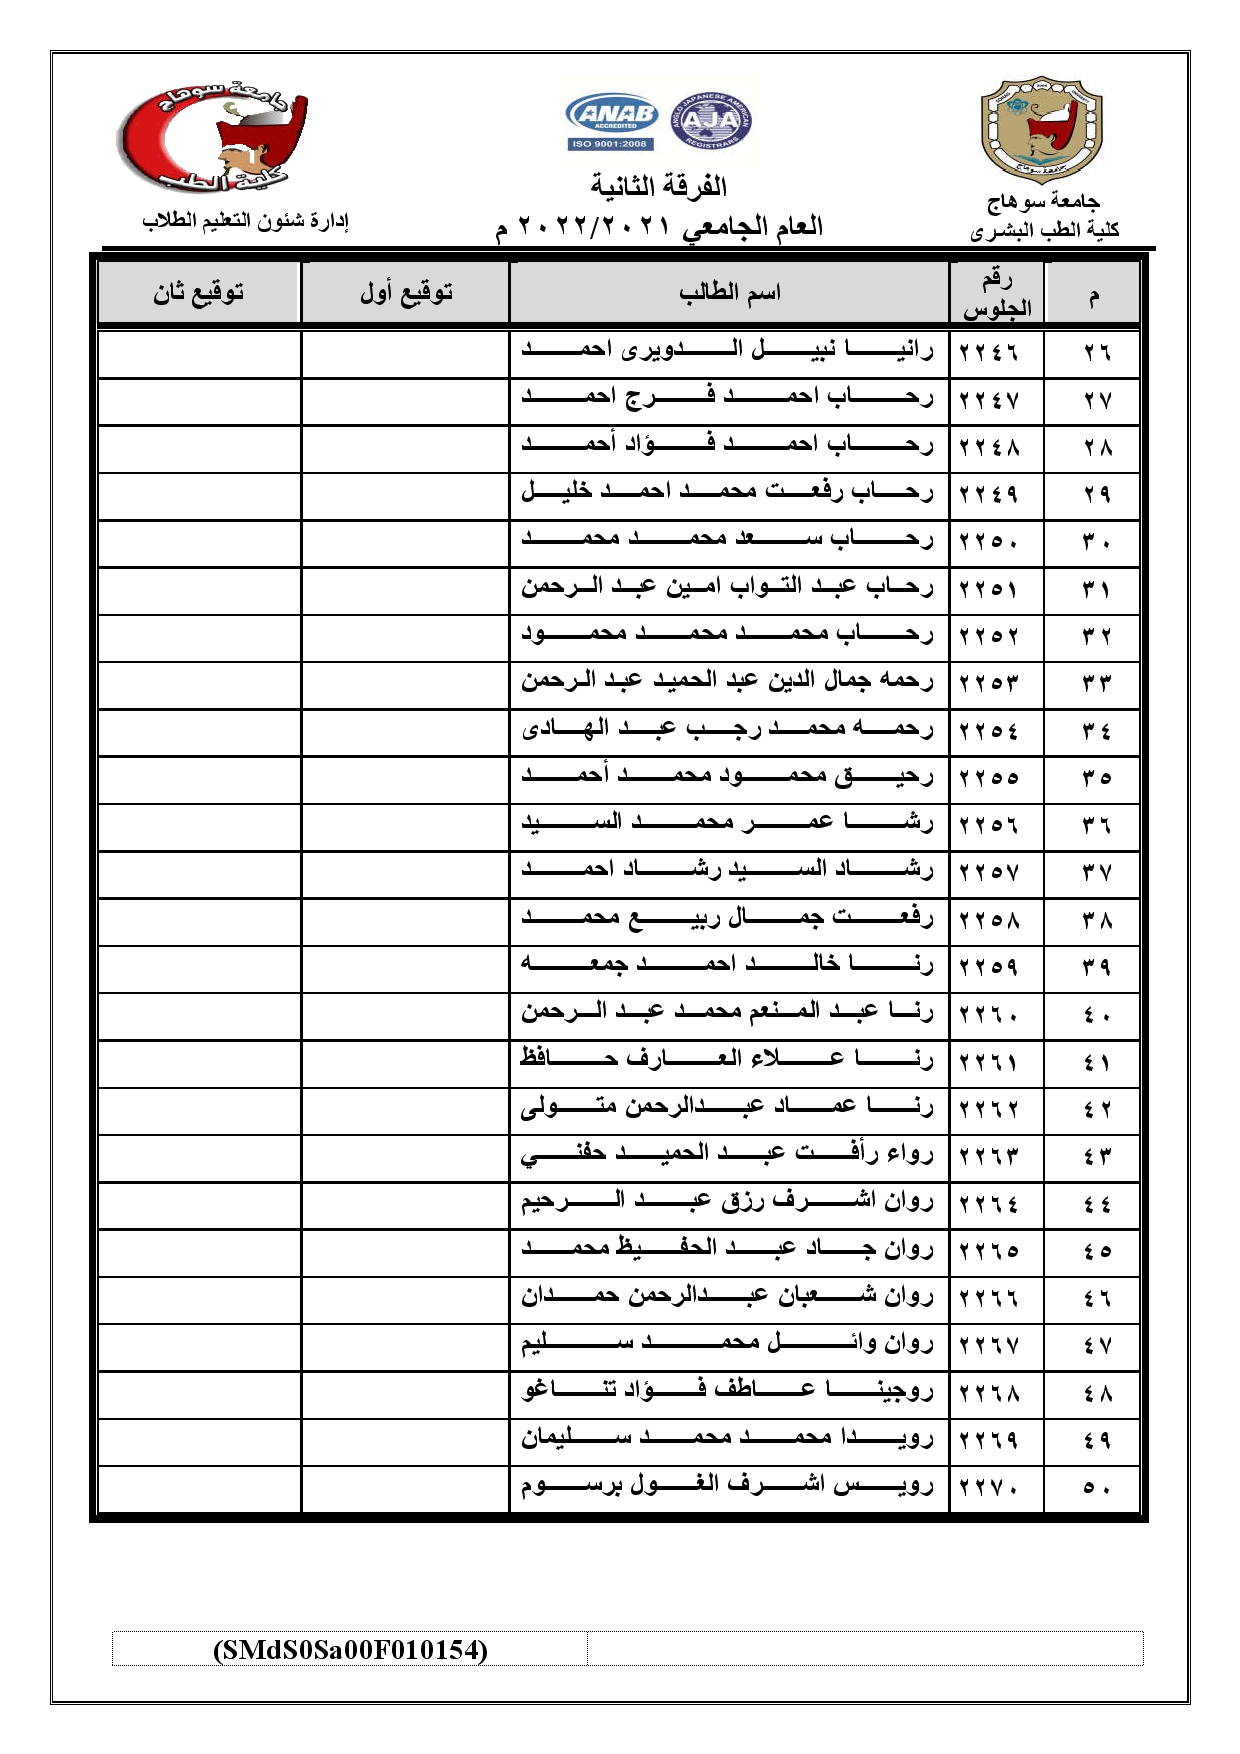 جامعة سوهاج
كلية الطب
ANAB
ACCREDITED
ISO 9001:2008
ANGLO JAPANESE AMERICAN
AJA
REGISTRARS
جامعة سوهاج
جامعة سوهاج
كلية الطب البشرى
الفرقة الثانية
العام الجامعي ٢٠٢٢/٢٠٢١ م
إدارة شئون التعليم الطلاب
م رقم الجلوس اسم الطالب توقيع أول توقيع ثان
٢٦ ٢٢٤٦ رانيا نبيل الدويرى احمد
٢٧ ٢٢٤٧ رحاب احمد فرج احمد
٢٨ ٢٢٤٨ رحاب احمد فؤاد أحمد
٢٩ ٢٢٤٩ رحاب رفعت محمد احمد خليل
٣٠ ٢٢٥٠ رحاب سعد محمد محمد
٣١ ٢٢٥١ رحاب عبد التواب امين عبد الرحمن
٣٢ ٢٢٥٢ رحاب محمد محمد محمود
٣٣ ٢٢٥٣ رحمه جمال الدين عبد الحميد عبد الرحمن
٣٤ ٢٢٥٤ رحمه محمد رجب عبد الهادى
٣٥ ٢٢٥٥ رحيق محمود محمد أحمد
٣٦ ٢٢٥٦ رشا عمر محمد السيد
٣٧ ٢٢٥٧ رشاد السيد رشاد احمد
٣٨ ٢٢٥٨ رفعت جمال ربيع محمد
٣٩ ٢٢٥٩ رنا خالد احمد جمعه
٤٠ ٢٢٦٠ رنا عبد المنعم محمد عبد الرحمن
٤١ ٢٢٦١ رنا علاء العارف حافظ
٤٢ ٢٢٦٢ رنا عماد عبدالرحمن متولى
٤٣ ٢٢٦٣ رواء رأفت عبد الحميد حفني
٤٤ ٢٢٦٤ روان اشرف رزق عبد الرحيم
٤٥ ٢٢٦٥ روان جاد عبد الحفيظ محمد
٤٦ ٢٢٦٦ روان شعبان عبدالرحمن حمدان
٤٧ ٢٢٦٧ روان وائل محمد سليم
٤٨ ٢٢٦٨ روجينا عاطف فؤاد تناغو
٤٩ ٢٢٦٩ رويدا محمد محمد سليمان
٥٠ ٢٢٧٠ رويس اشرف الغول برسوم
(SMdS0Sa00F010154)